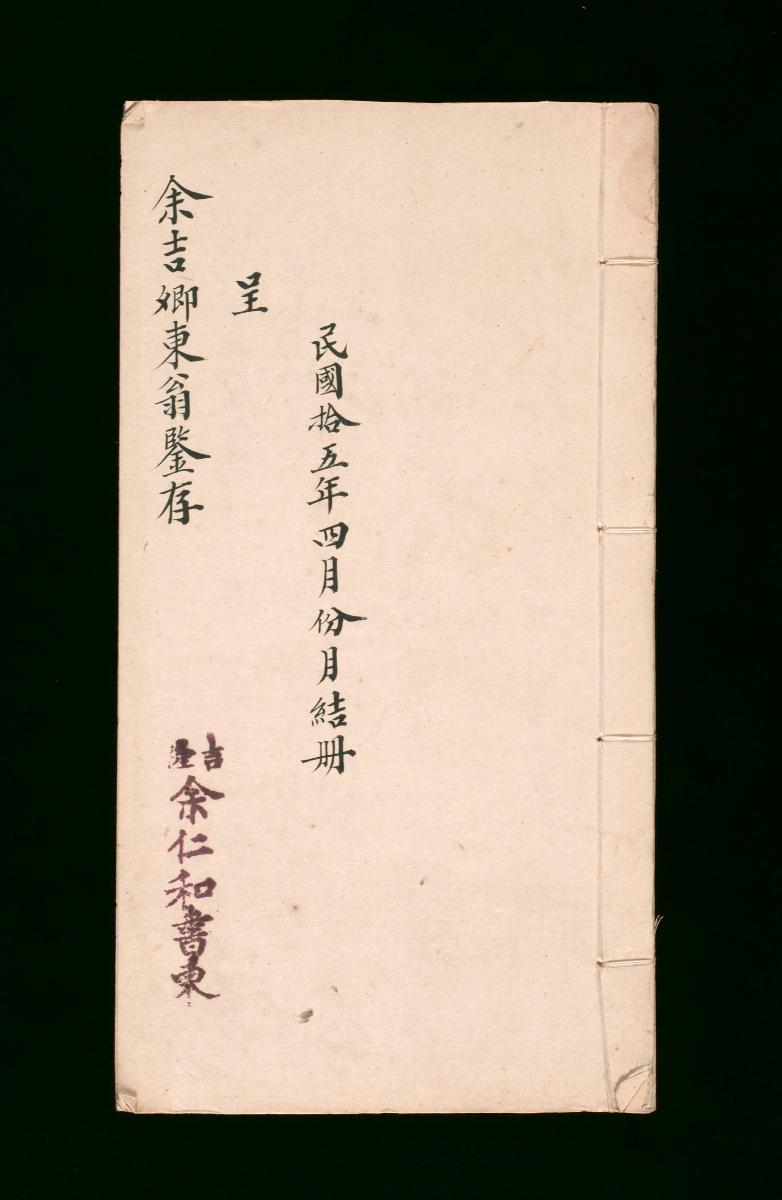 民國拾五年四月份月結册
呈
余吉卿東翁鑒存
吉隆
余仁和書柬